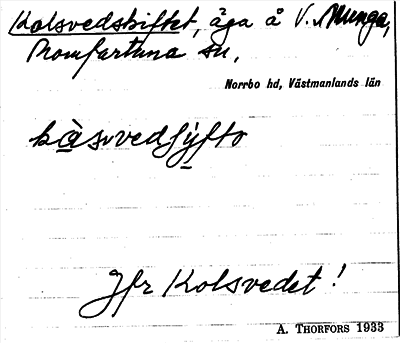 Kolsvedskiftet, äga å V. Munga,
Romfartuna sn,
Norrbo hd, Västmanlands län
Jfr Kolsvedet!
A. THORFORS 1933